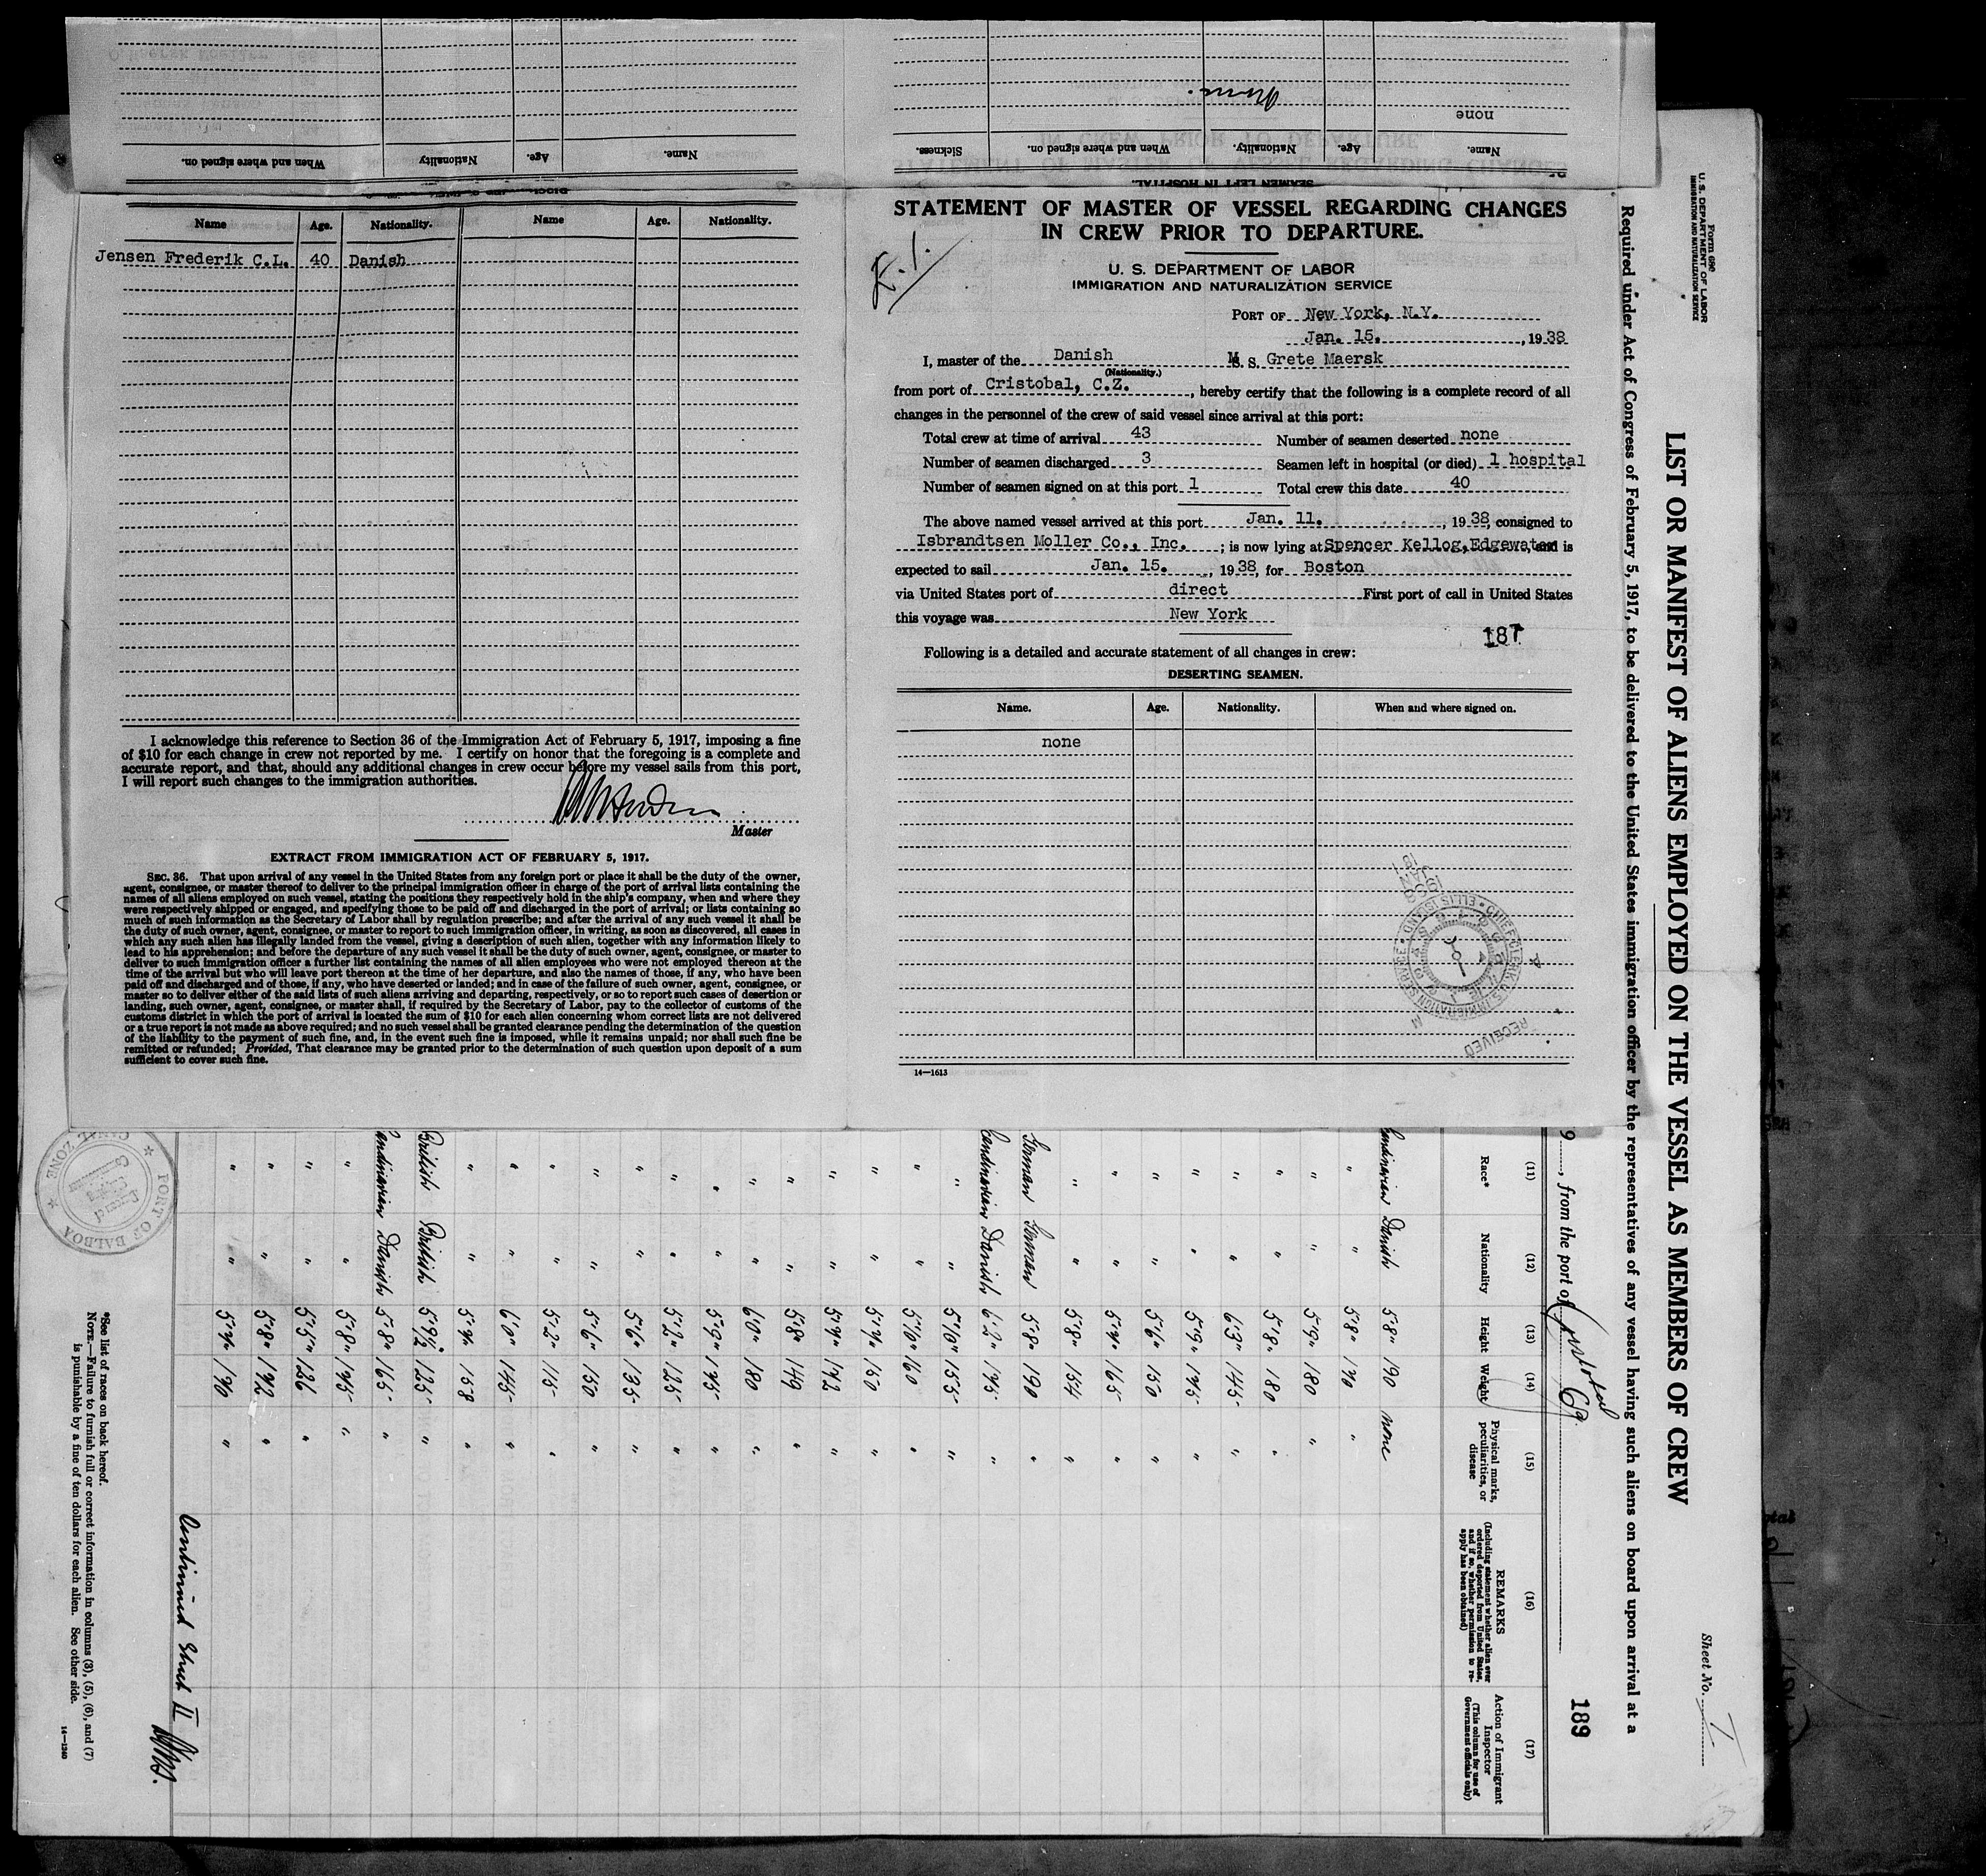 When and where signed on.
Nationality
Age.
Name.
Sickness.
When and where signed on.
Nationality.
Age.
Name.
none
None.
SEAMEN LEFT IN HOSPITAL.
Name Age. Nationality. Name Age. Nationality.
Jensen Frederik C.L. 40 Danish
I acknowledge this reference to Section 36 of the Immigration Act of February 5, 1917, imposing a fine
of $10 for each change in crew not reported by me. I certify on honor that the foregoing is a complete and
accurate report, and that, should any additional changes in crew occur before my vessel sails from this port,
I will report such changes to the immigration authorities.
Master
EXTRACT FROM IMMIGRATION ACT OF FEBRUARY 5, 1917.
SEC. 36. That upon arrival of any vessel in the United States from any foreign port or place it shall be the duty of the owner,
agent, consignee, or master thereof to deliver to the principal immigration officer in charge of the port of arrival lists containing the
names of all aliens employed on such vessel, stating the positions they respectively hold in the ship's company, when and where they
were respectively shipped or engaged, and specifying those to be paid off and discharged in the port of arrival; or lists containing so
much of such information as the Secretary of Labor shall by regulation prescribe; and after the arrival of any such vessel it shall be
the duty of such owner, agent, consignee, or master to report to such immigration officer, in writing, as soon as discovered, all cases in
which any such alien has illegally landed from the vessel, giving a description of such alien, together with any information likely to
lead to his apprehension; and before the departure of any such vessel it shall be the duty of such owner, agent, consignee, or master to
deliver to such immigration officer a further list containing the names of all alien employees who were not employed thereon at the
time of the arrival but who will leave port thereon at the time of her departure, and also the names of those, if any, who have been
paid off and discharged and of those, if any, who have deserted or landed; and in case of the failure of such owner, agent, consignee, or
master so to deliver either of the said lists of such aliens arriving and departing, respectively, or so to report such cases of desertion or
landing, such owner, agent, consignee, or master shall, if required by the Secretary of Labor, pay to the collector of customs of the
customs district in which the port of arrival is located the sum of $10 for each alien concerning whom correct lists are not delivered
or a true report is not made as above required; and no such vessel shall be granted clearance pending the determination of the question
of the liability to the payment of such fine, and, in the event such fine is imposed, while it remains unpaid; nor shall such fine be
remitted or refunded; Provided, That clearance may be granted prior to the determination of such question upon deposit of a sum
sufficient to cover such fine.
STATEMENT OF MASTER OF VESSEL REGARDING CHANGES
IN CREW PRIOR TO DEPARTURE.
E.I.
U. S. DEPARTMENT OF LABOR
IMMIGRATION AND NATURALIZATION SERVICE
PORT OF New York, N.Y.
Jan. 15. , 1938
I, master of the Danish M. S. Grete Maersk
(Nationality.)
from port of Cristobal, C.Z. , hereby certify that the following is a complete record of all
changes in the personnel of the crew of said vessel since arrival at this port:
Total crew at time of arrival 43 Number of seamen deserted none
Number of seamen discharged 3 Seamen left in hospital (or died) 1 hospital
Number of seamen signed on at this port 1 Total crew this date 40
The above named vessel arrived at this port Jan. 11. , 1938, consigned to
Isbrandtsen Moller Co., Inc. ; is now lying at Spencer Kellog, Edgewater and is
expected to sail Jan. 15. , 1938, for Boston
via United States port of direct First port of call in United States
this voyage was New York
187
Following is a detailed and accurate statement of all changes in crew:
DESERTING SEAMEN.
Name. Age. Nationality. When and where signed on.
none
RECEIVED
CHIEF CLERK U.S. IMMIGRATION SERVICE • ELLIS ISLAND
14—1613
Form 680
U. S. DEPARTMENT OF LABOR
IMMIGRATION AND NATURALIZATION SERVICE
Sheet No. I
LIST OR MANIFEST OF ALIENS EMPLOYED ON THE VESSEL AS MEMBERS OF CREW
Required under Act of Congress of February 5, 1917, to be delivered to the United States immigration officer by the representatives of any vessel having such aliens on board upon arrival at a
9 , from the port of Cristobal
189
(11) (12) (13) (14) (15) (16) (17)
Race* Nationality Height Weight Physical marks, peculiarities, or disease REMARKS (Including statement whether alien ever ordered deported from United States, and if so, whether permission to reapply has been obtained) Action of Immigrant Inspector (This column for use of Government officials only)
andinavian Danish 5'8" 190 none
" " 5'8" 170 "
" " 5'9" 180 "
" " 5'8" 180 "
" " 6'3" 145 "
" " 5'9" 175 "
" " 5'6" 150 "
" " 5'7" 165 "
" " 5'8" 154 "
German German 5'8" 190 "
Scandinavian Danish 6'2" 175 "
" " 5'10" 155 "
" " 5'10" 160 "
" " 5'7" 150 "
" " 5'7" 172 "
" " 5'8" 149 "
" " 6'0" 180 "
" " 5'9" 175 "
" " 5'2" 125 "
" " 5'6" 135 "
" " 5'6" 150 "
" " 5'2" 115 "
" " 6'0" 145 "
" " 5'7" 158 "
British British 5'9½" 125 "
andinavian Danish 5'8" 165 "
" " 5'8" 175 "
" " 5'5" 126 "
" " 5'8" 172 "
" " 5'7" 170 "
Continued Sheet II
PORT OF BALBOA
CANAL ZONE
*See list of races on back hereof.
NOTE.—Failure to furnish full or correct information in columns (3), (5), (6), and (7)
is punishable by a fine of ten dollars for each alien. See other side.
14—1240